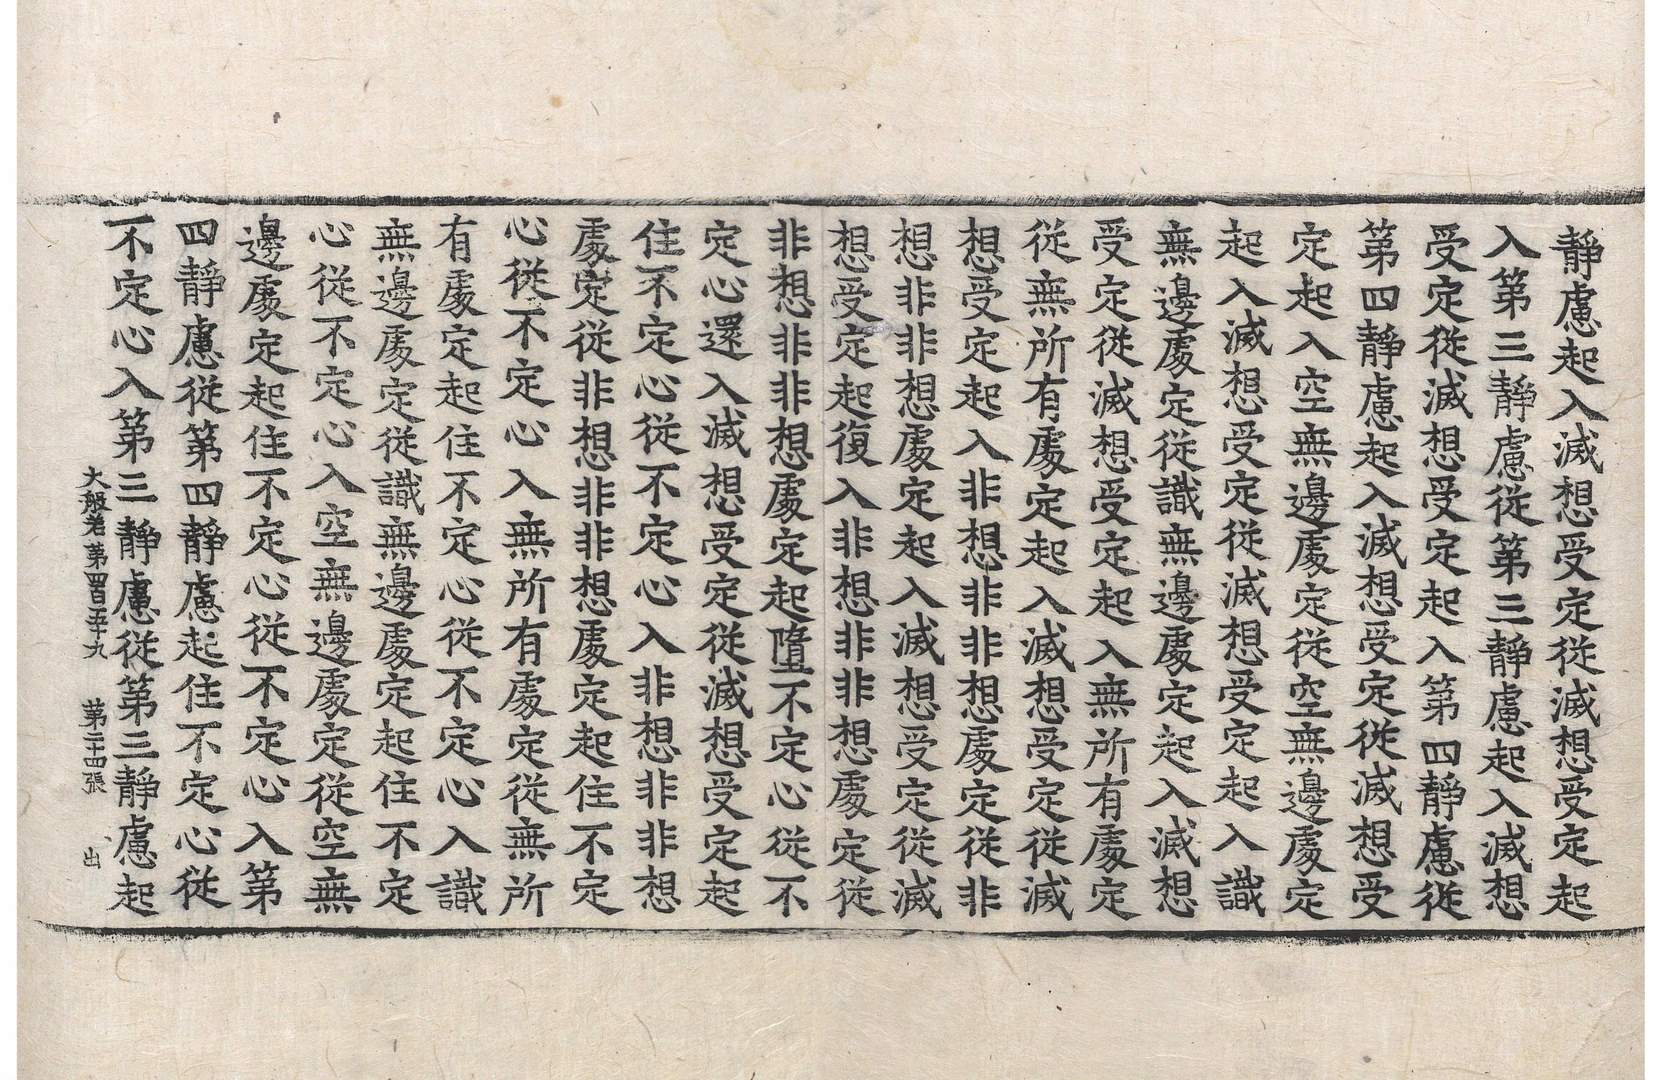 靜慮起入滅想受定從滅想受定起
入第三靜慮從第三靜慮起入滅想
受定從滅想受定起入第四靜慮從
第四靜慮起入滅想受定從滅想受
定起入空無邊處定從空無邊處定
起入滅想受定從滅想受定起入識
無邊處定從識無邊處定起入滅想
受定從滅想受定起入無所有處定
從無所有處定起入滅想受定從滅
想受定起入非想非非想處定從非
想非非想處定起入滅想受定從滅
想受定起復入非想非非想處定從
非想非非想處定起墮不定心從不
定心還入滅想受定從滅想受定起
住不定心從不定心入非想非非想
處定從非想非非想處定起住不定
心從不定心入無所有處定從無所
有處定起住不定心從不定心入識
無邊處定從識無邊處定起住不定
心從不定心入空無邊處定從空無
邊處定起住不定心從不定心入第
四靜慮從第四靜慮起住不定心從
不定心入第三靜慮從第三靜慮起
大般若第四百五十九 第二十四張 出